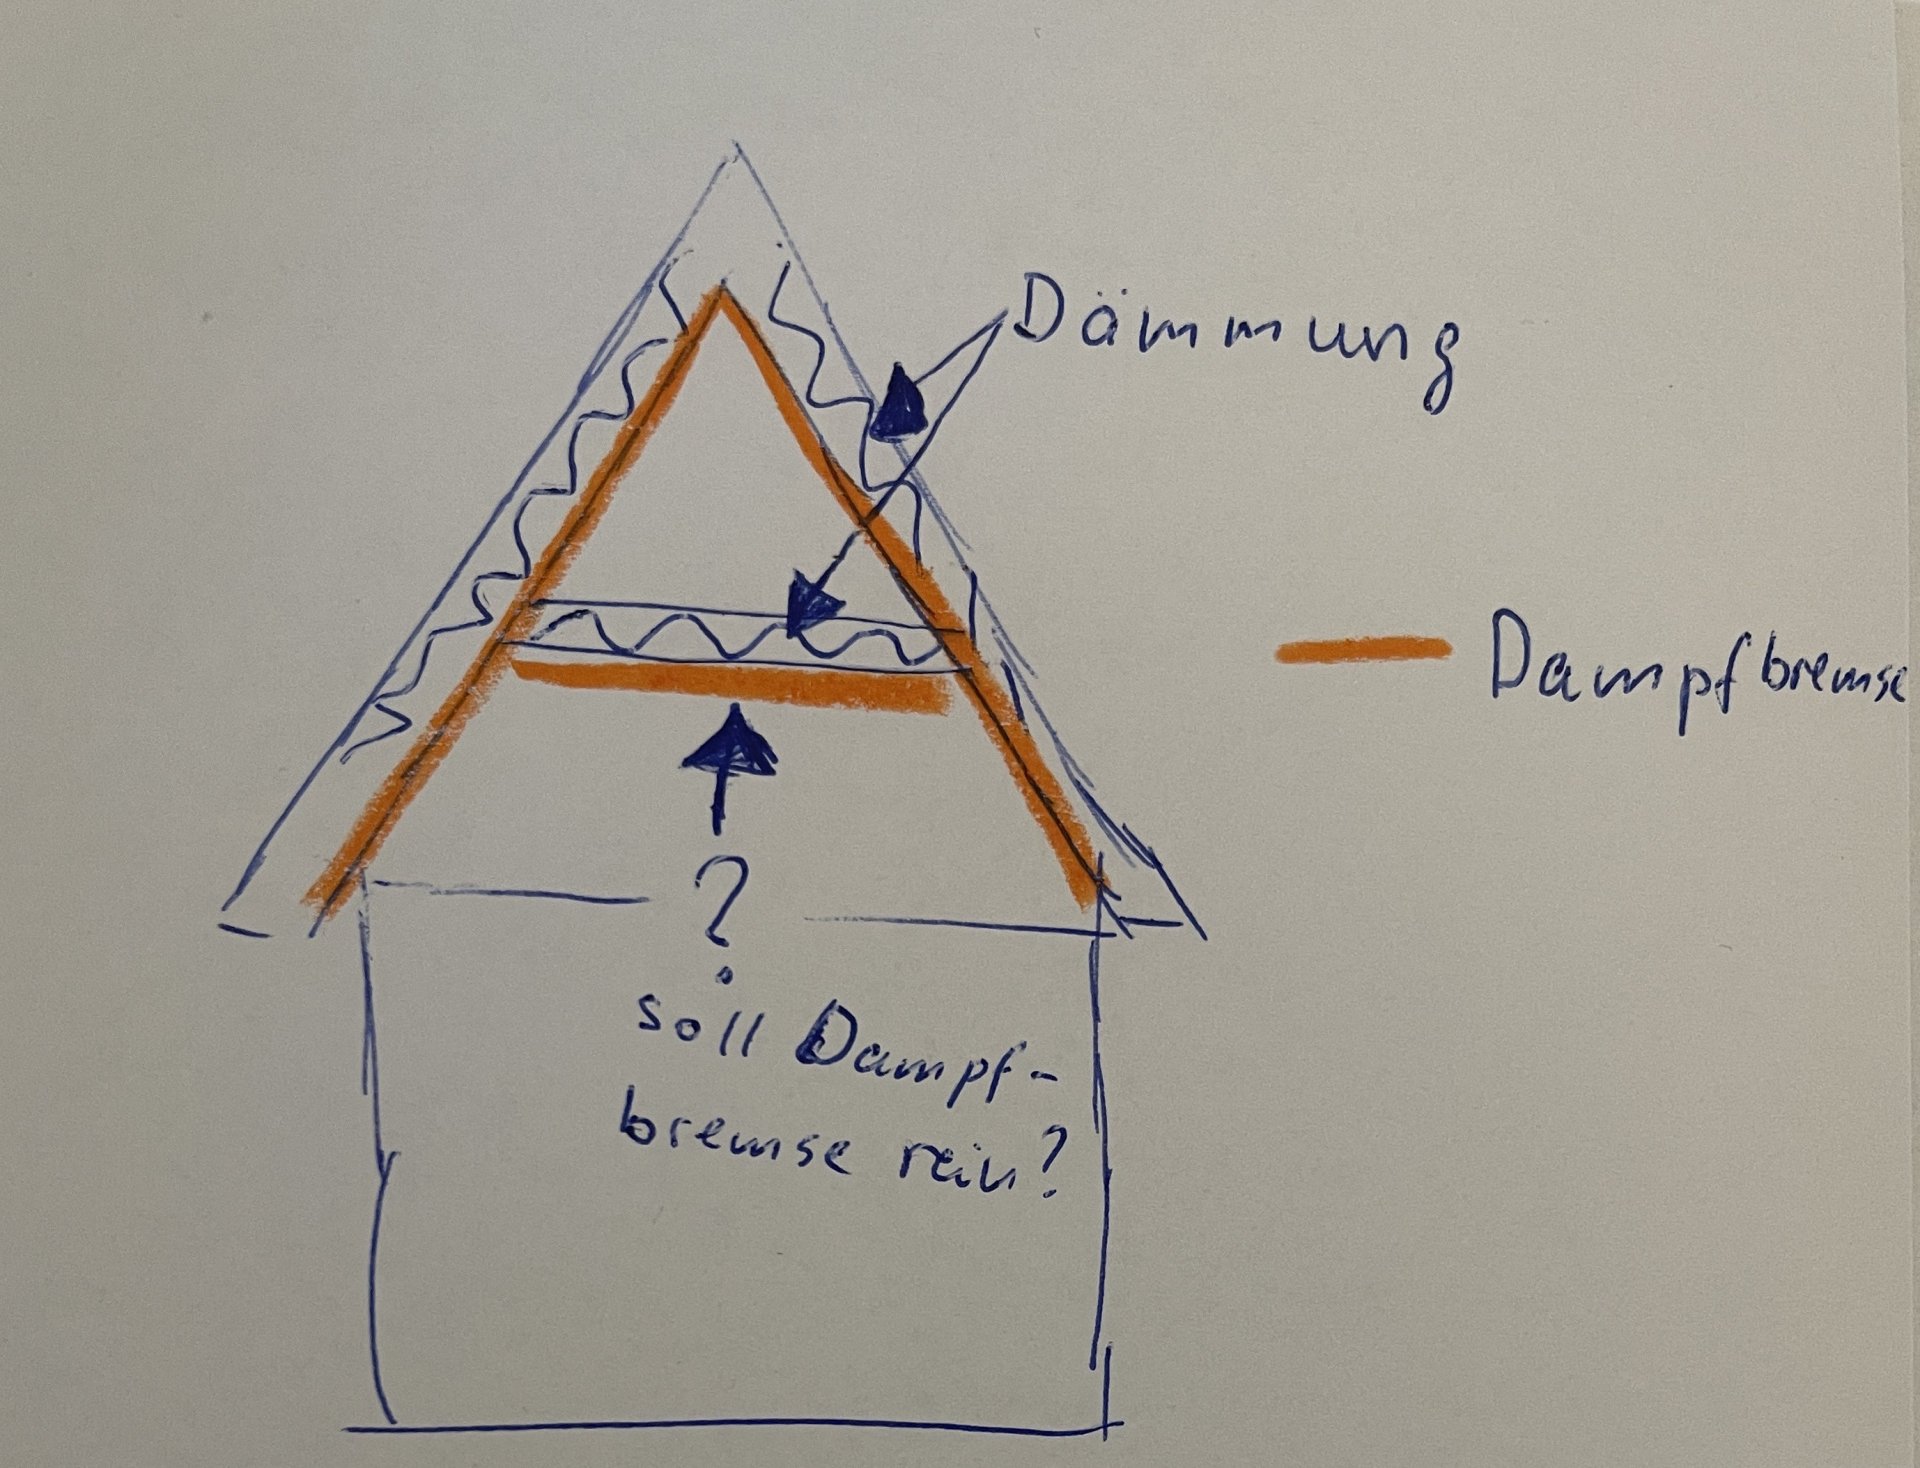 Dämmung
Dampfbremse
?
soll Dampf-
bremse rein?